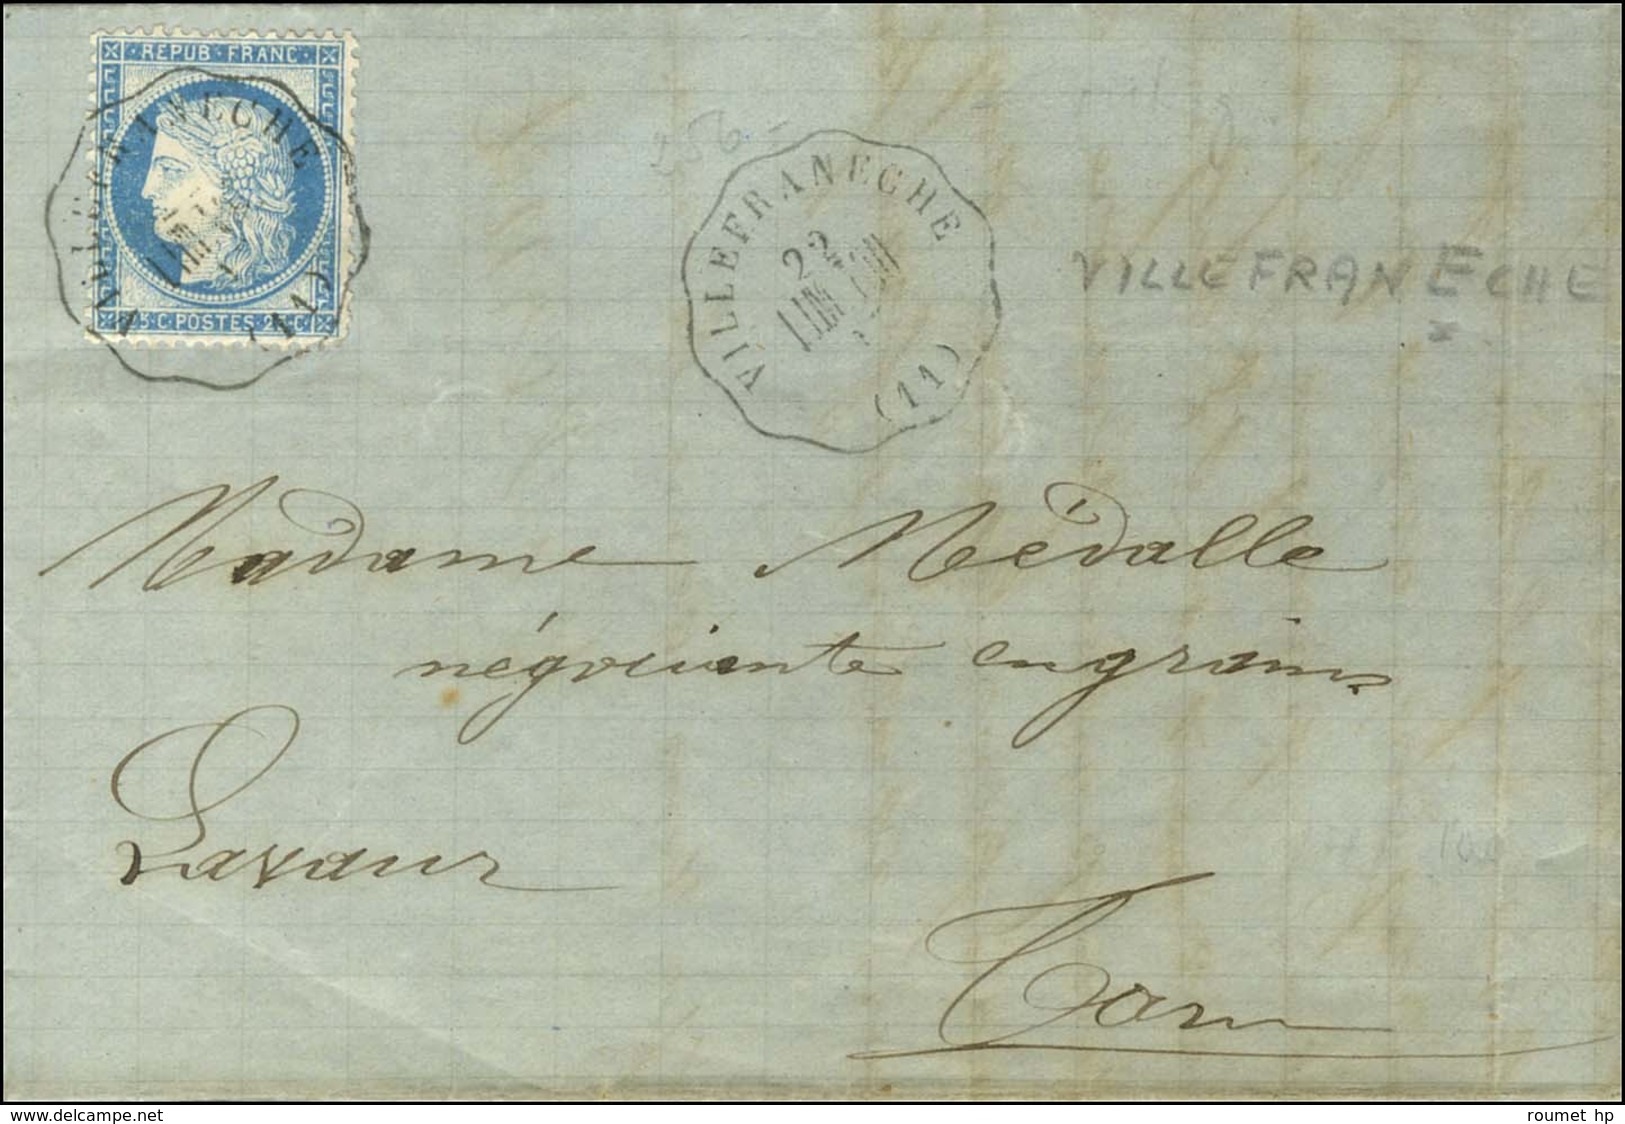 REPUB FRANC
25 C POSTES 25 C
VILLEFRANECHE
(11)
VILLEFRANECHE
22
(11)
VILLEFRANECHE
x
Madame Médalle
négociante en grains
Lavaur
Tarn
www.delcampe.net
roumet hp